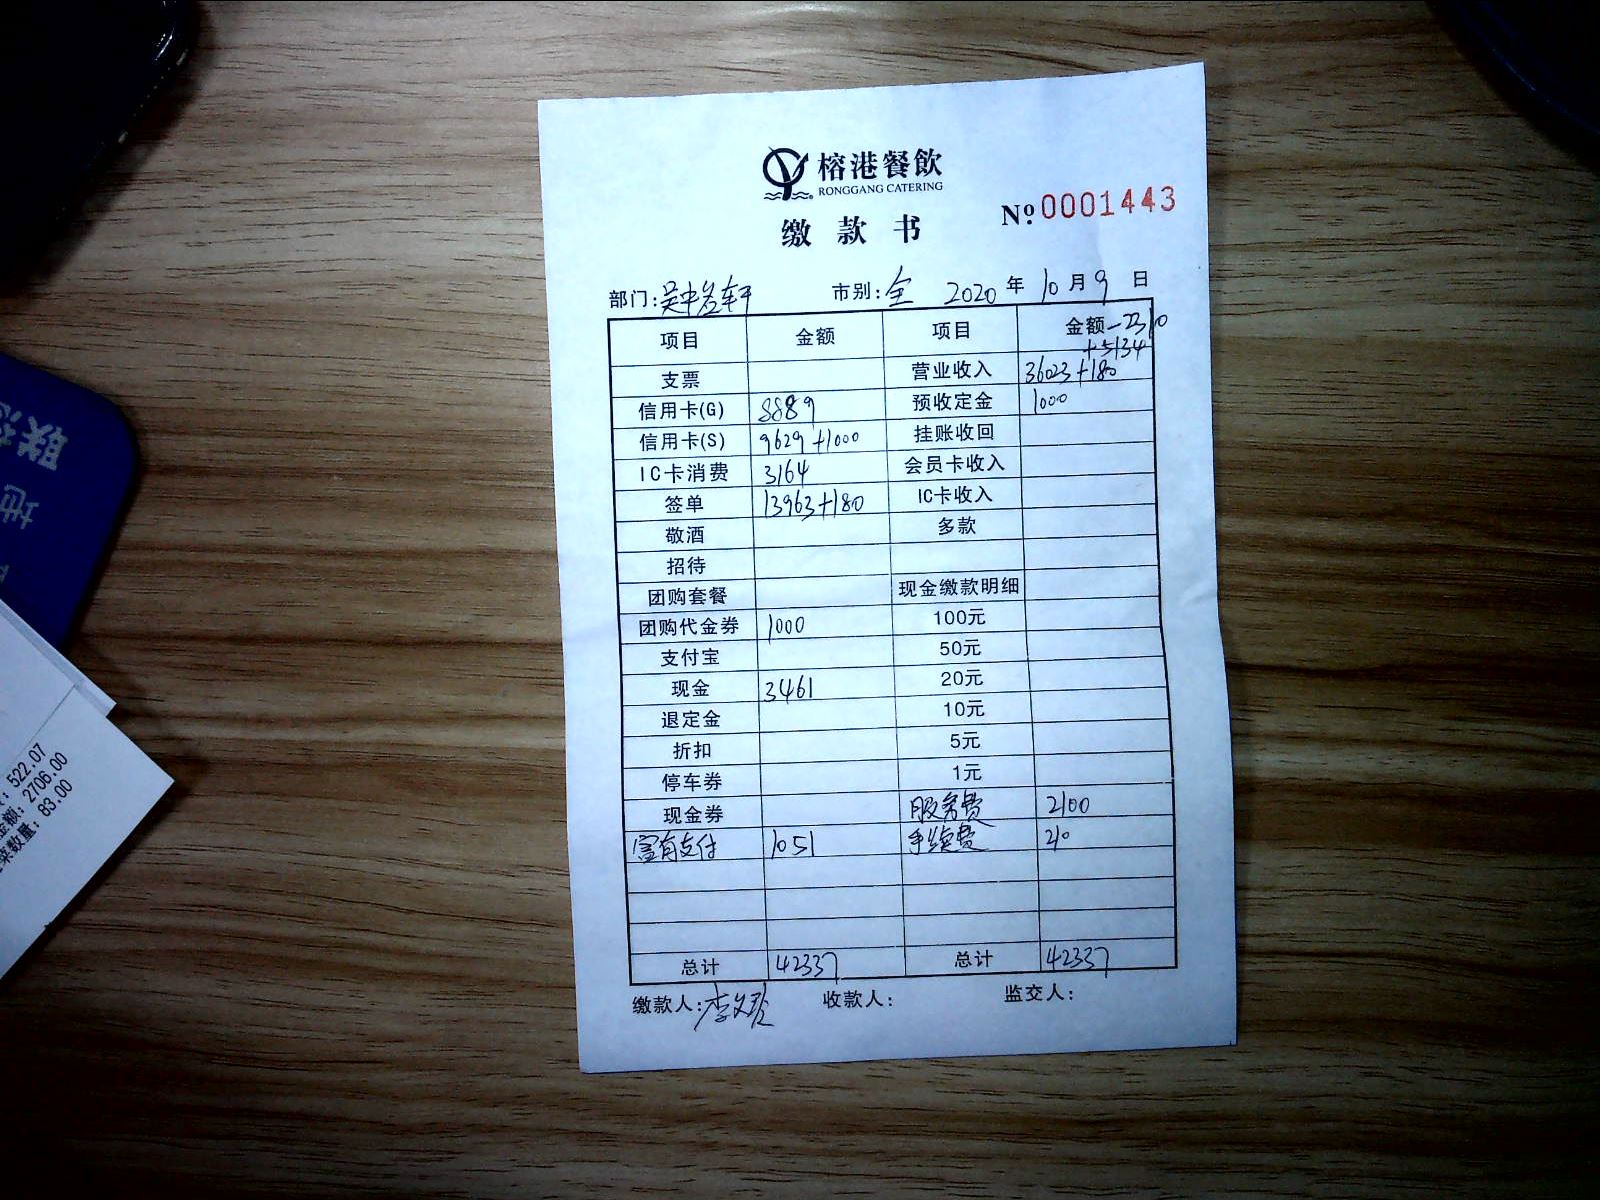 榕港餐飲
RONGGANG CATERING
缴款书
№0001443
部门:吴中名轩 市别:全 2020年10月9日
项目 金额 项目 金额-2310
+5134
支票 营业收入 36023+180
信用卡(G) 8889 预收定金 1000
信用卡(S) 9629+1000 挂账收回
IC卡消费 3164 会员卡收入
签单 13963+180 IC卡收入
敬酒 多款
招待
团购套餐 现金缴款明细
团购代金券 1000 100元
支付宝 50元
现金 3461 20元
退定金 10元
折扣 5元
停车券 1元
现金券 服务费 2100
富有支付 1051 手续费 210
总计 42337 总计 42337
缴款人: 收款人: 监交人:
522.07
金额: 2706.00
菜数量: 83.00
联想
地